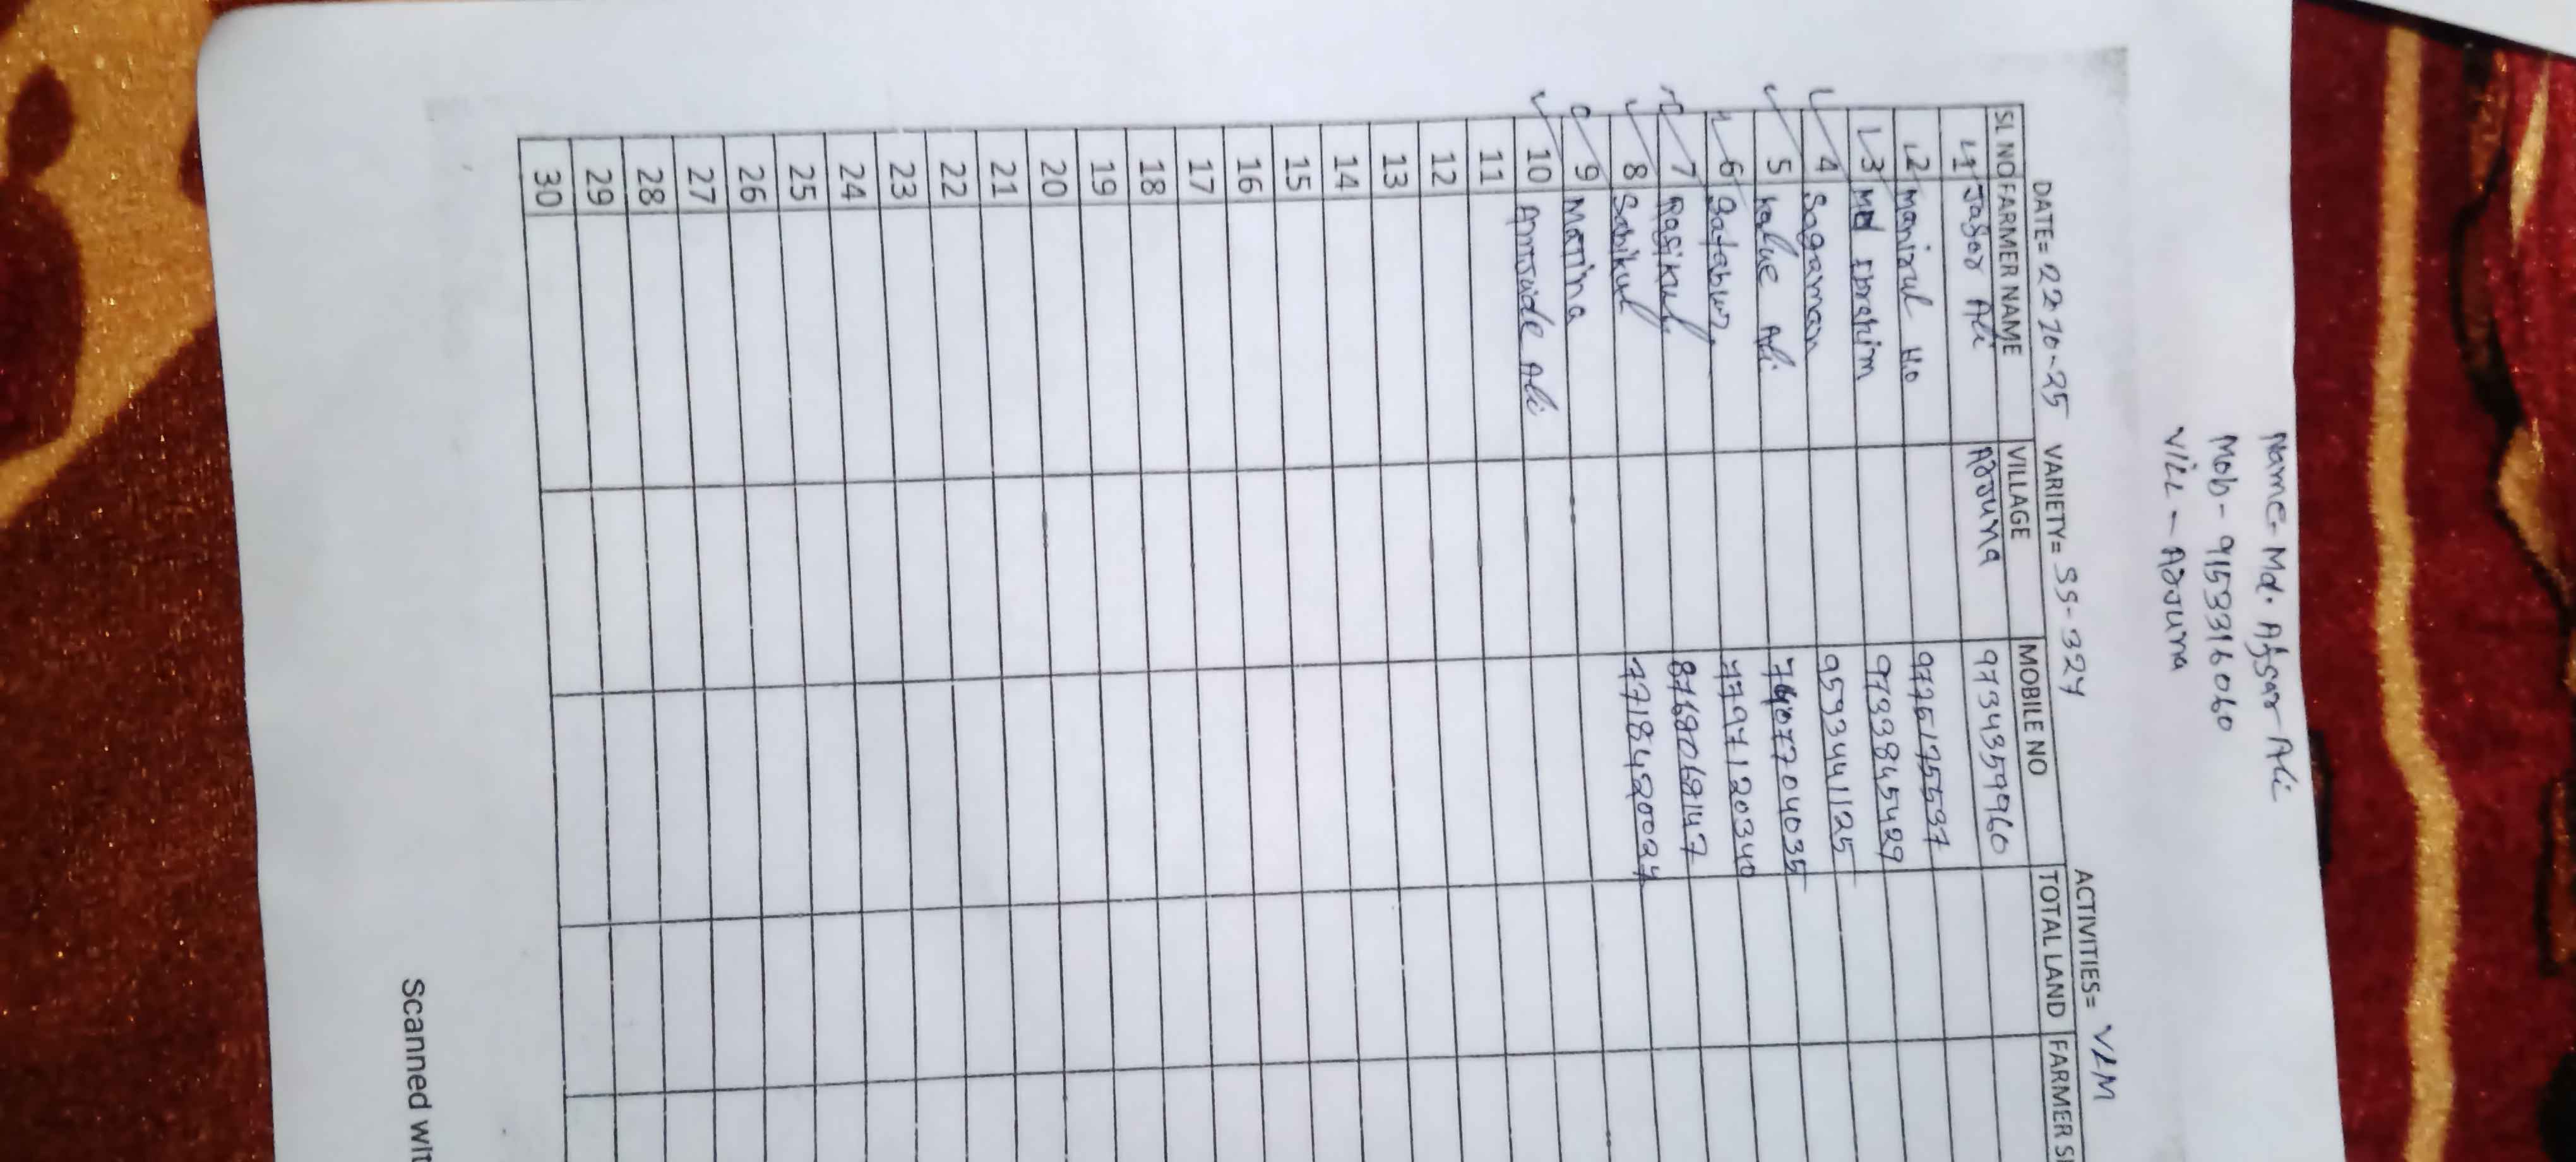 Name- Md. Afsar Ali
Mob- 9153316060
Vill - Arjuna
DATE= 22 10-25 VARIETY= SS-324 ACTIVITIES= VLM
SL NO FARMER NAME VILLAGE MOBILE NO TOTAL LAND FARMER SI
1 Jasor Ali Arjuna 9734359960
2 Manirul Ho 9775175537
3 Md Ibrahim 9733845429
4 Sagarman 9593441125
5 kalue Ali 04035
6 7797120340
7 Rasikul 8768068147
8 Sabikul 7718420024
9 Marjina
10 Ali
11
12
13
14
15
16
17
18
19
20
21
22
23
24
25
26
27
28
29
30
Scanned wit